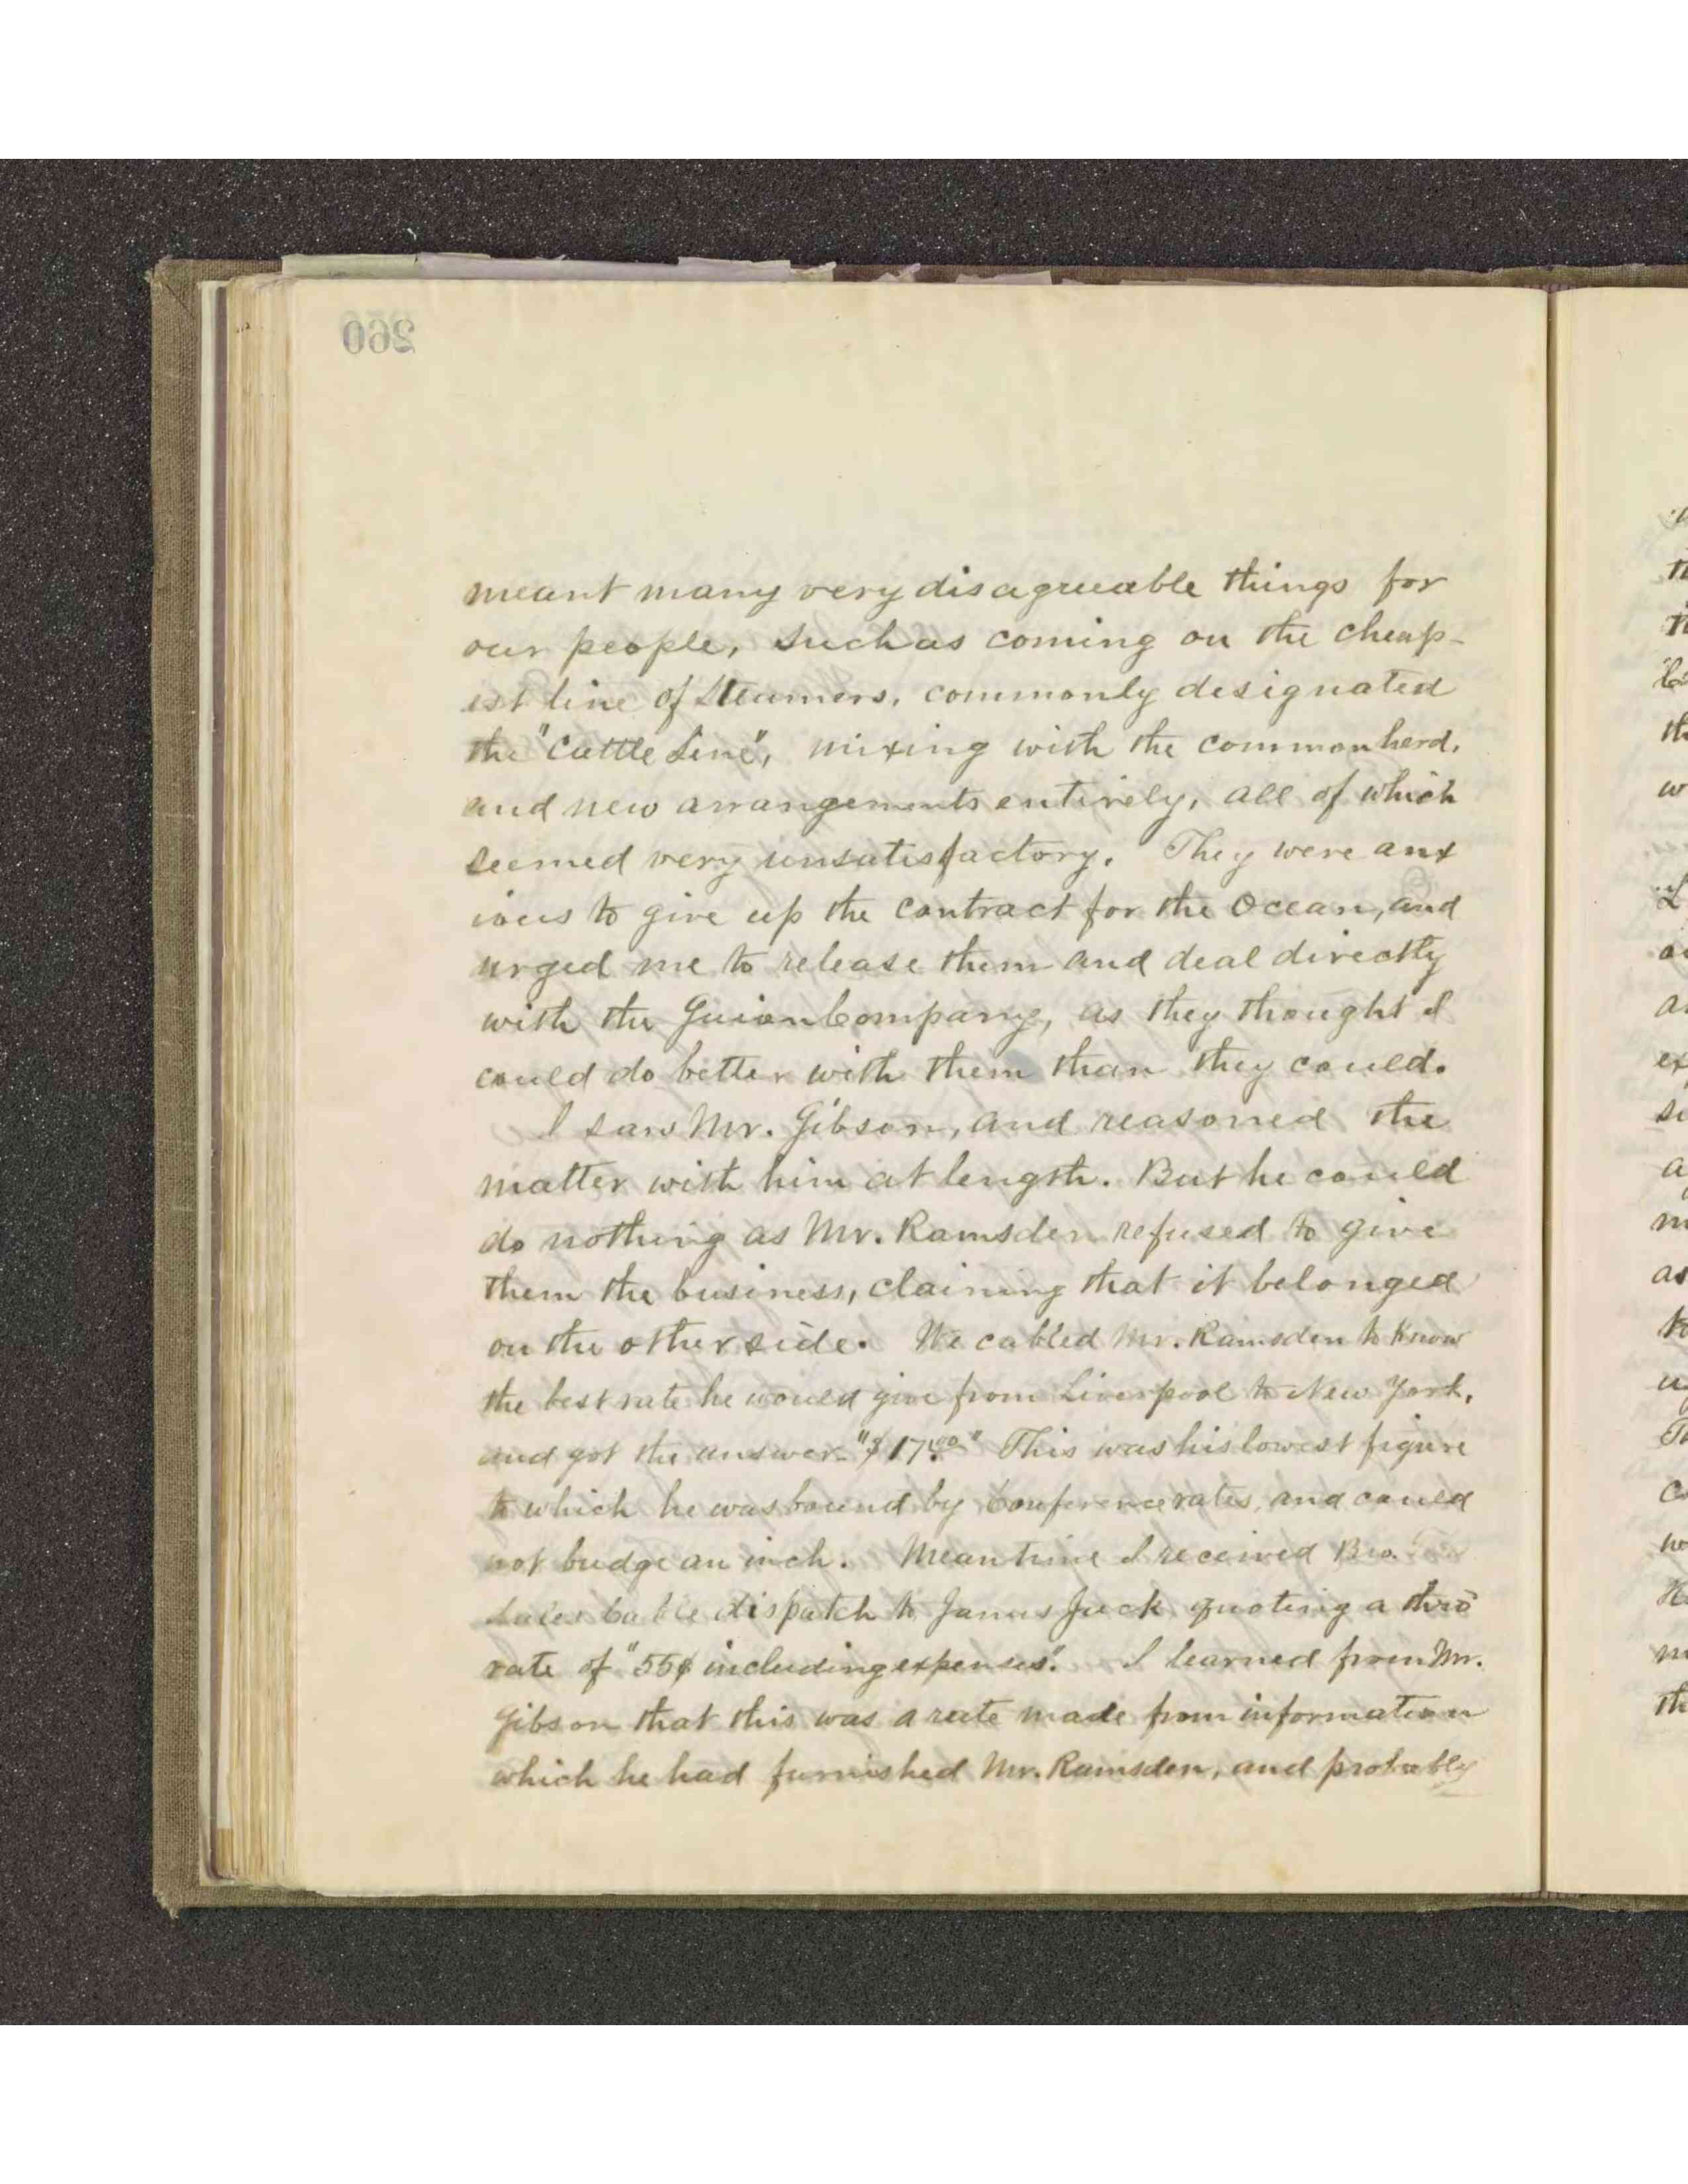 260
meant many very disagreeable things for
our people, such as coming on the cheap-
est line of Steamers, commonly designated
the "Cattle Line", mixing with the common herd,
and new arrangements entirely, all of which
seemed very unsatisfactory. They were anx
ious to give up the contract for the Ocean, and
urged me to release them and deal directly
with the Guion Company, as they thought I
could do better with them than they could.
I saw Mr. Gibson, and reasoned the
matter with him at length. But he could
do nothing as Mr. Ramsden refused to give
them the business, claiming that it belonged
on the other side. We cabled Mr. Ramsden to know
the best rate he would give from Liverpool to New York,
and got the answer "$17.00" This was his lowest figure
to which he was bound by Conference rates, and could
not budge an inch. Meantime I received Bro.
Cable dispatch to James Jack quoting a thro
rate of "55¢ including expenses". I learned from Mr.
Gibson that this was a rate made from information
which he had furnished Mr. Ramsden, and probably